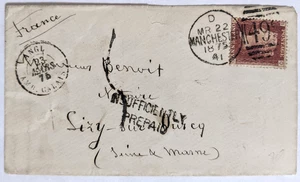 France
D
MR 22
MANCHESTER
1875
41
498
ANGL.
AMB. CALAIS
75
Monsieur Benoit
Notaire
INSUFFICIENTLY
PREPAID
Lizy-sur-Ourcq
(Seine & Marne)